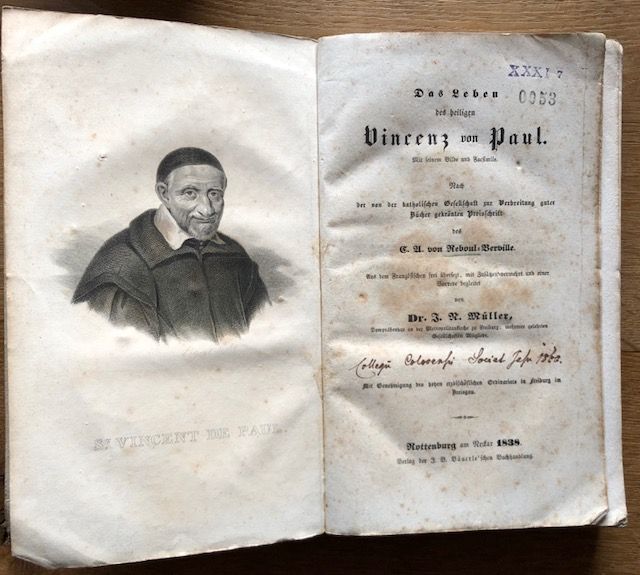 St VINCENT DE PAUL.
XXXI 7
0053
Das Leben
des heiligen
Vincenz von Paul.
Mit seinem Bilde und Facsimile.
Nach
der von der katholischen Gesellschaft zur Verbreitung guter
Bücher gekrönten Preisschrift
des
C. A. von Reboul-Berville.
Aus dem Französischen frei übersezt, mit Zusätzen vermehrt und einer
Vorrede begleitet
von
Dr. J. N. Müller,
Dompräbendar an der Metropolitankirche zu Freiburg, mehrerer gelehrten
Gesellschaften Mitgliede.
Collegii Colocensis Societ Jesu
Mit Genehmigung des hohen erzbischöflichen Ordinariats in Freiburg im
Breisgau.
Rottenburg am Neckar 1838.
Verlag der J. B. Bäuerle'schen Buchhandlung.